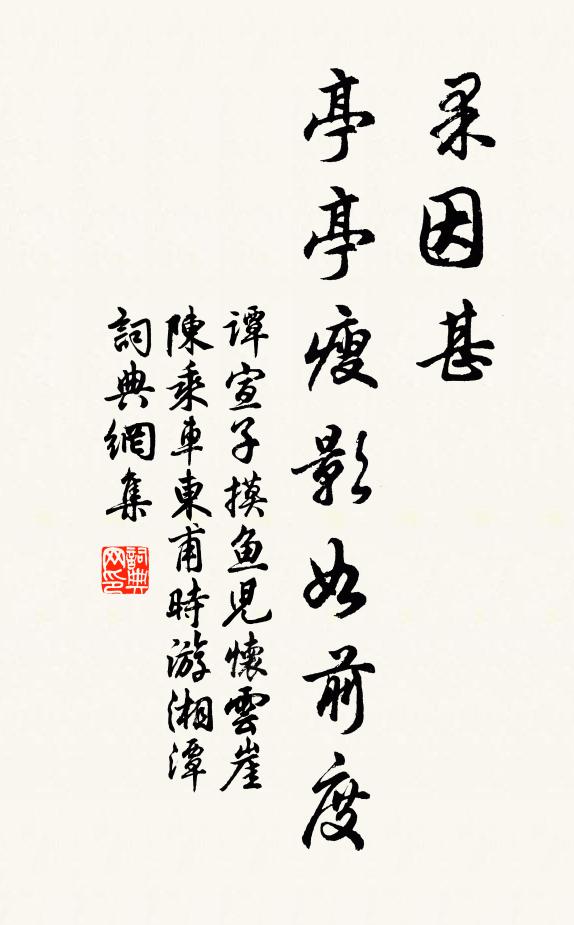 果因甚
亭亭瘦影如前度
譚宣子摸魚児懷雲崖
陳乘車東甫時游湘潭
詞典網集
詞典网印